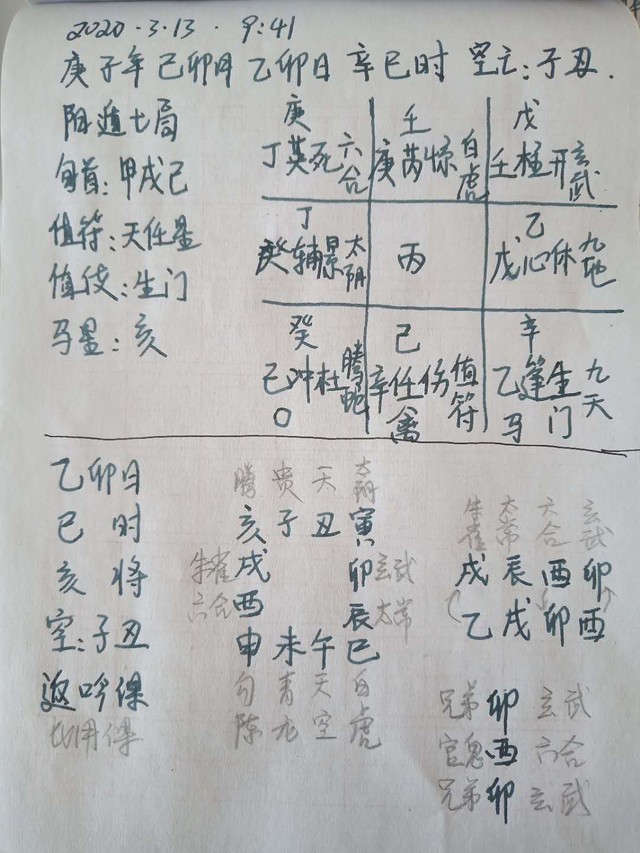 2020.3.13.9:41
庚子年 己卯月 乙卯日 辛巳时 空亡:子丑.
阳遁七局
旬首:甲戌己
值符:天任星
值使:生门
马星:亥
庚 壬 戊
丁英死六合 庚芮惊白虎 壬柱开玄武
丁 乙
癸辅景太阴 丙 戊心休九地
癸 己 辛
己冲杜腾蛇 辛任伤值符 乙蓬生九天
○ 禽 马 门
乙卯日
巳 时
亥 将
空:子丑
返吟课
比用课
腾 贵 天 太阴
亥 子 丑 寅
朱雀 戌 卯 玄武
六合 酉 辰 太常
申 未 午 巳
勾陈 青龙 天空 白虎
朱雀 太常 六合 玄武
戌 辰 酉 卯
乙 戌 卯 酉
兄弟 卯 玄武
官鬼 酉 六合
兄弟 卯 玄武